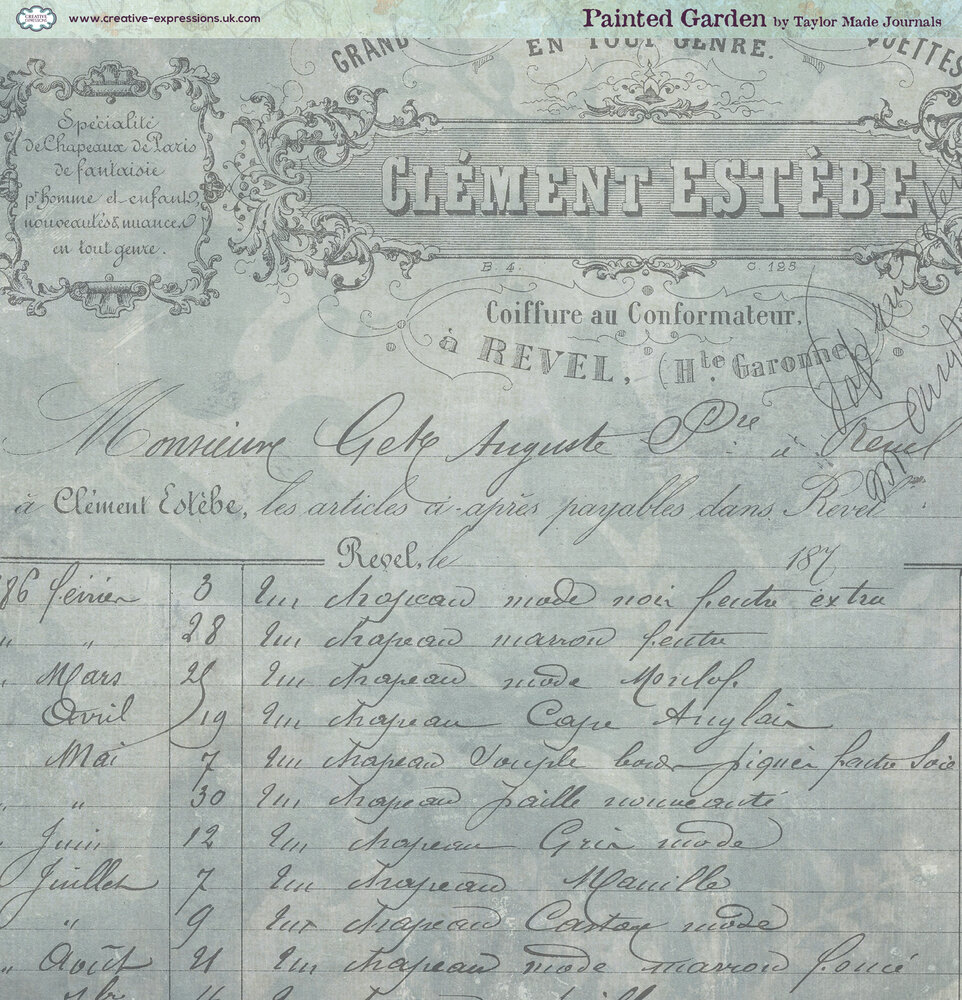 CREATIVE EXPRESSIONS
www.creative-expressions.uk.com
Painted Garden by Taylor Made Journals
GRAND EN TOUT GENRE. QUETTES
Spécialité
de Chapeaux de Paris
de fantaisie
pr homme et enfants,
nouveautés & nuances
en tout genre.
CLÉMENT ESTÈBE
B 4. C 128
Coiffure au Conformateur,
à REVEL, (Hte Garonne)
Monsieur Auguste à Revel
à Clément Estèbe, les articles ci-après payables dans Revel
Revel, le 187
86 février 3 Un chapeau mode noir feutre extra
" " 28 Un chapeau marron feutre
" Mars Un chapeau mode
Avril 19 Un chapeau Cape Anglais
Mai 7 Un chapeau Souple bord piqué feutre Soie
" " 30 Un chapeau paille nouveauté
Juin 12 Un chapeau Gris mode
Juillet 7 Un chapeau Manille
" 9 Un chapeau mode
" Août 21 Un chapeau mode marron foncé